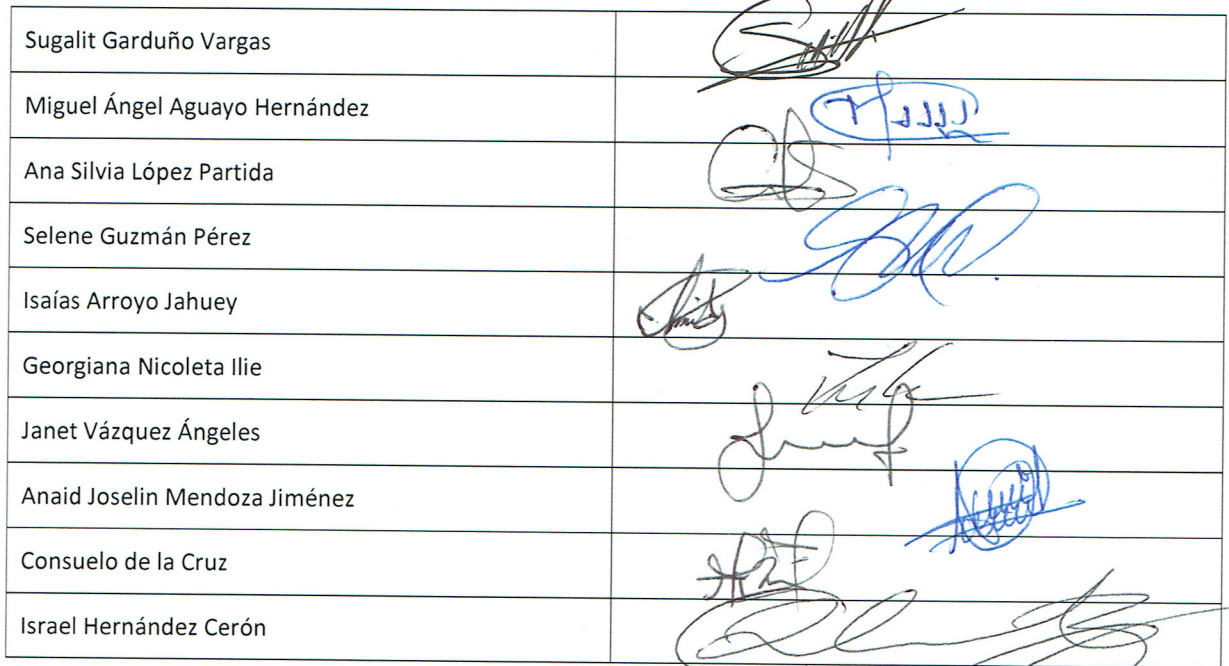 Sugalit Garduño Vargas
Miguel Ángel Aguayo Hernández
Ana Silvia López Partida
Selene Guzmán Pérez
Isaías Arroyo Jahuey
Georgiana Nicoleta Ilie
Janet Vázquez Ángeles
Anaid Joselin Mendoza Jiménez
Consuelo de la Cruz
Israel Hernández Cerón